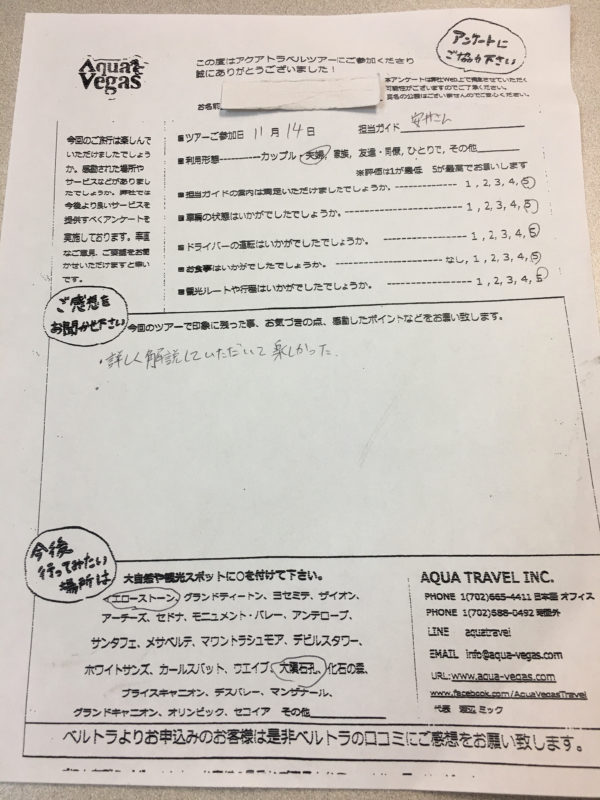 Aqua Vegas
この度はアクアトラベルツアーにご参加くださり
誠にありがとうございました！
アンケートに
ご協力下さい
本アンケートは弊社Web上で掲載させていただく
可能性がございますのでご了承ください。
実名の公開はございませんのでご安心ください。
お名前
今回のご旅行は楽しんで
いただけましたでしょう
か。感動された場所や
サービスなどがありまし
たでしょうか。弊社では
今後より良いサービスを
提供すべくアンケートを
実施しております。率直
なご意見、ご要望をお聞
かせいただけますと幸い
です。
■ツアーご参加日 11月14日 担当ガイド
■利用形態----------カップル・夫婦，家族，友達・同僚，ひとりで，その他
※評価は1が最低 5が最高でお願いします
■担当ガイドの案内は満足いただけましたでしょうか。---------------- 1，2，3，4，5
■車輛の状態はいかがでしたでしょうか。---------------------------- 1，2，3，4，5
■ドライバーの運転はいかがでしたでしょうか。 -------------------- 1，2，3，4，5
■お食事はいかがでしたでしょうか。------------------------ なし，1，2，3，4，5
■観光ルートや行程はいかがでしたでしょうか。 -------------------- 1，2，3，4，5
ご感想を
お聞かせ下さい
今回のツアーで印象に残った事、お気づきの点、感動したポイントなどをお願い致します。
・詳しく解説していただいて楽しかった。
今後
行ってみたい
場所は
大自然や観光スポットに○を付けて下さい。
イエローストーン、グランドティートン、ヨセミテ、ザイオン、
アーチーズ、セドナ、モニュメント・バレー、アンテロープ、
サンタフェ、メサベルデ、マウントラシュモア、デビルスタワー、
ホワイトサンズ、カールスバット、ウエイブ、大隕石孔、化石の森、
ブライスキャニオン、デスバレー、マンザナール、
グランドキャニオン、オリンピック、セコイア その他
AQUA TRAVEL INC.
PHONE 1(702)665-4411 日本語 オフィス
PHONE 1(702)588-0492 時間外
LINE aquatravel
EMAIL info@aqua-vegas.com
URL:www.aqua-vegas.com
www.facebook.com/AquaVegasTravel
代表 渡辺 ミック
ベルトラよりお申込みのお客様は是非ベルトラの口コミにご感想をお願い致します。